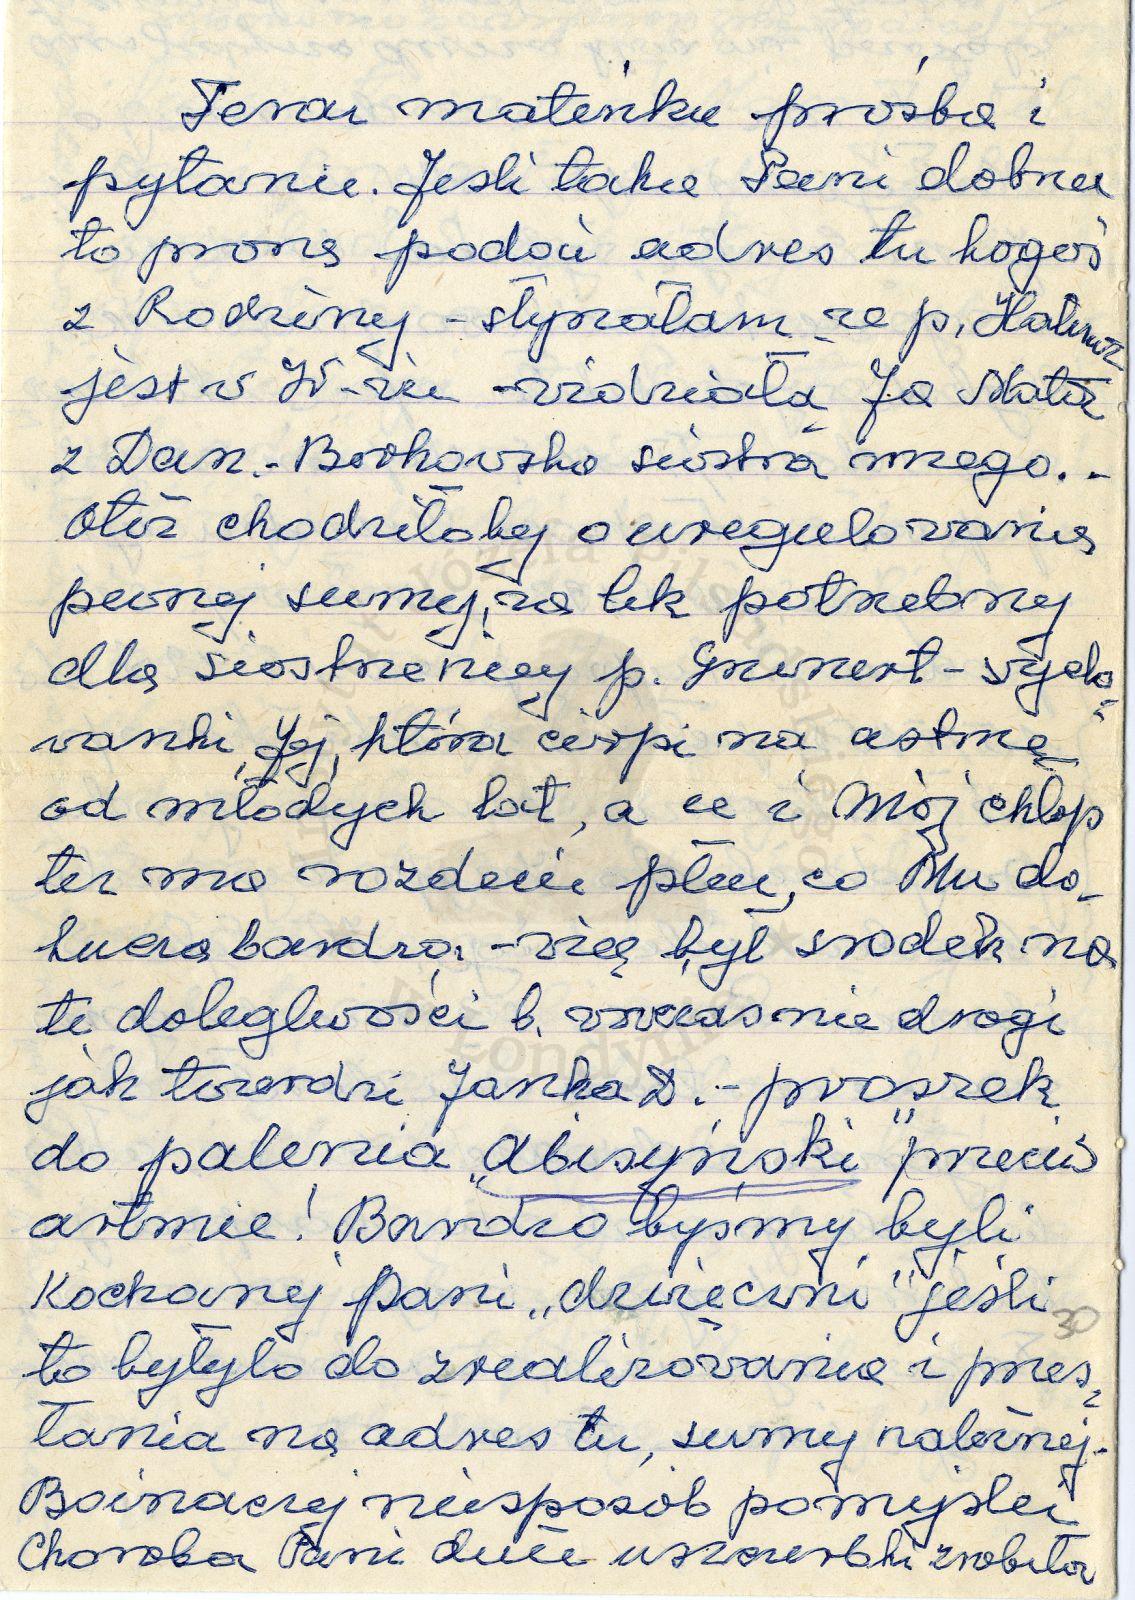 Teraz maleńka prośba i
pytanie. Jeśli taka Pani dobra
to proszę podać adres tu kogoś
z Rodziny - słyszałam że p. Halina
jest w W-wie - widziała Ją
z Dan. - Borkowska siostra mego. -
Otóż chodziłoby o uregulowanie
pewnej sumy, za lek potrzebny
dla siostrzenicy p. Grunert - wycho-
wanki Jej, która cierpi na astmę
od młodych lat, a że i Mój chłop
też ma rozdęcie płuc, co Mu do-
kucza bardzo, - więc był środek na
te dolegliwości b. drogi
jak twierdzi Janka D. - proszek
do palenia "Abisyński" przeciw
astmie! Bardzo byśmy byli
Kochanej Pani "dźwięczni" jeśli
to byłyło do zrealizowania i przes-
łania na adres tu, sumy należnej.
Boinaczej niesposób pomyśleć
Choroba Pani duże uszczerbki zrobiła
30
Londyn